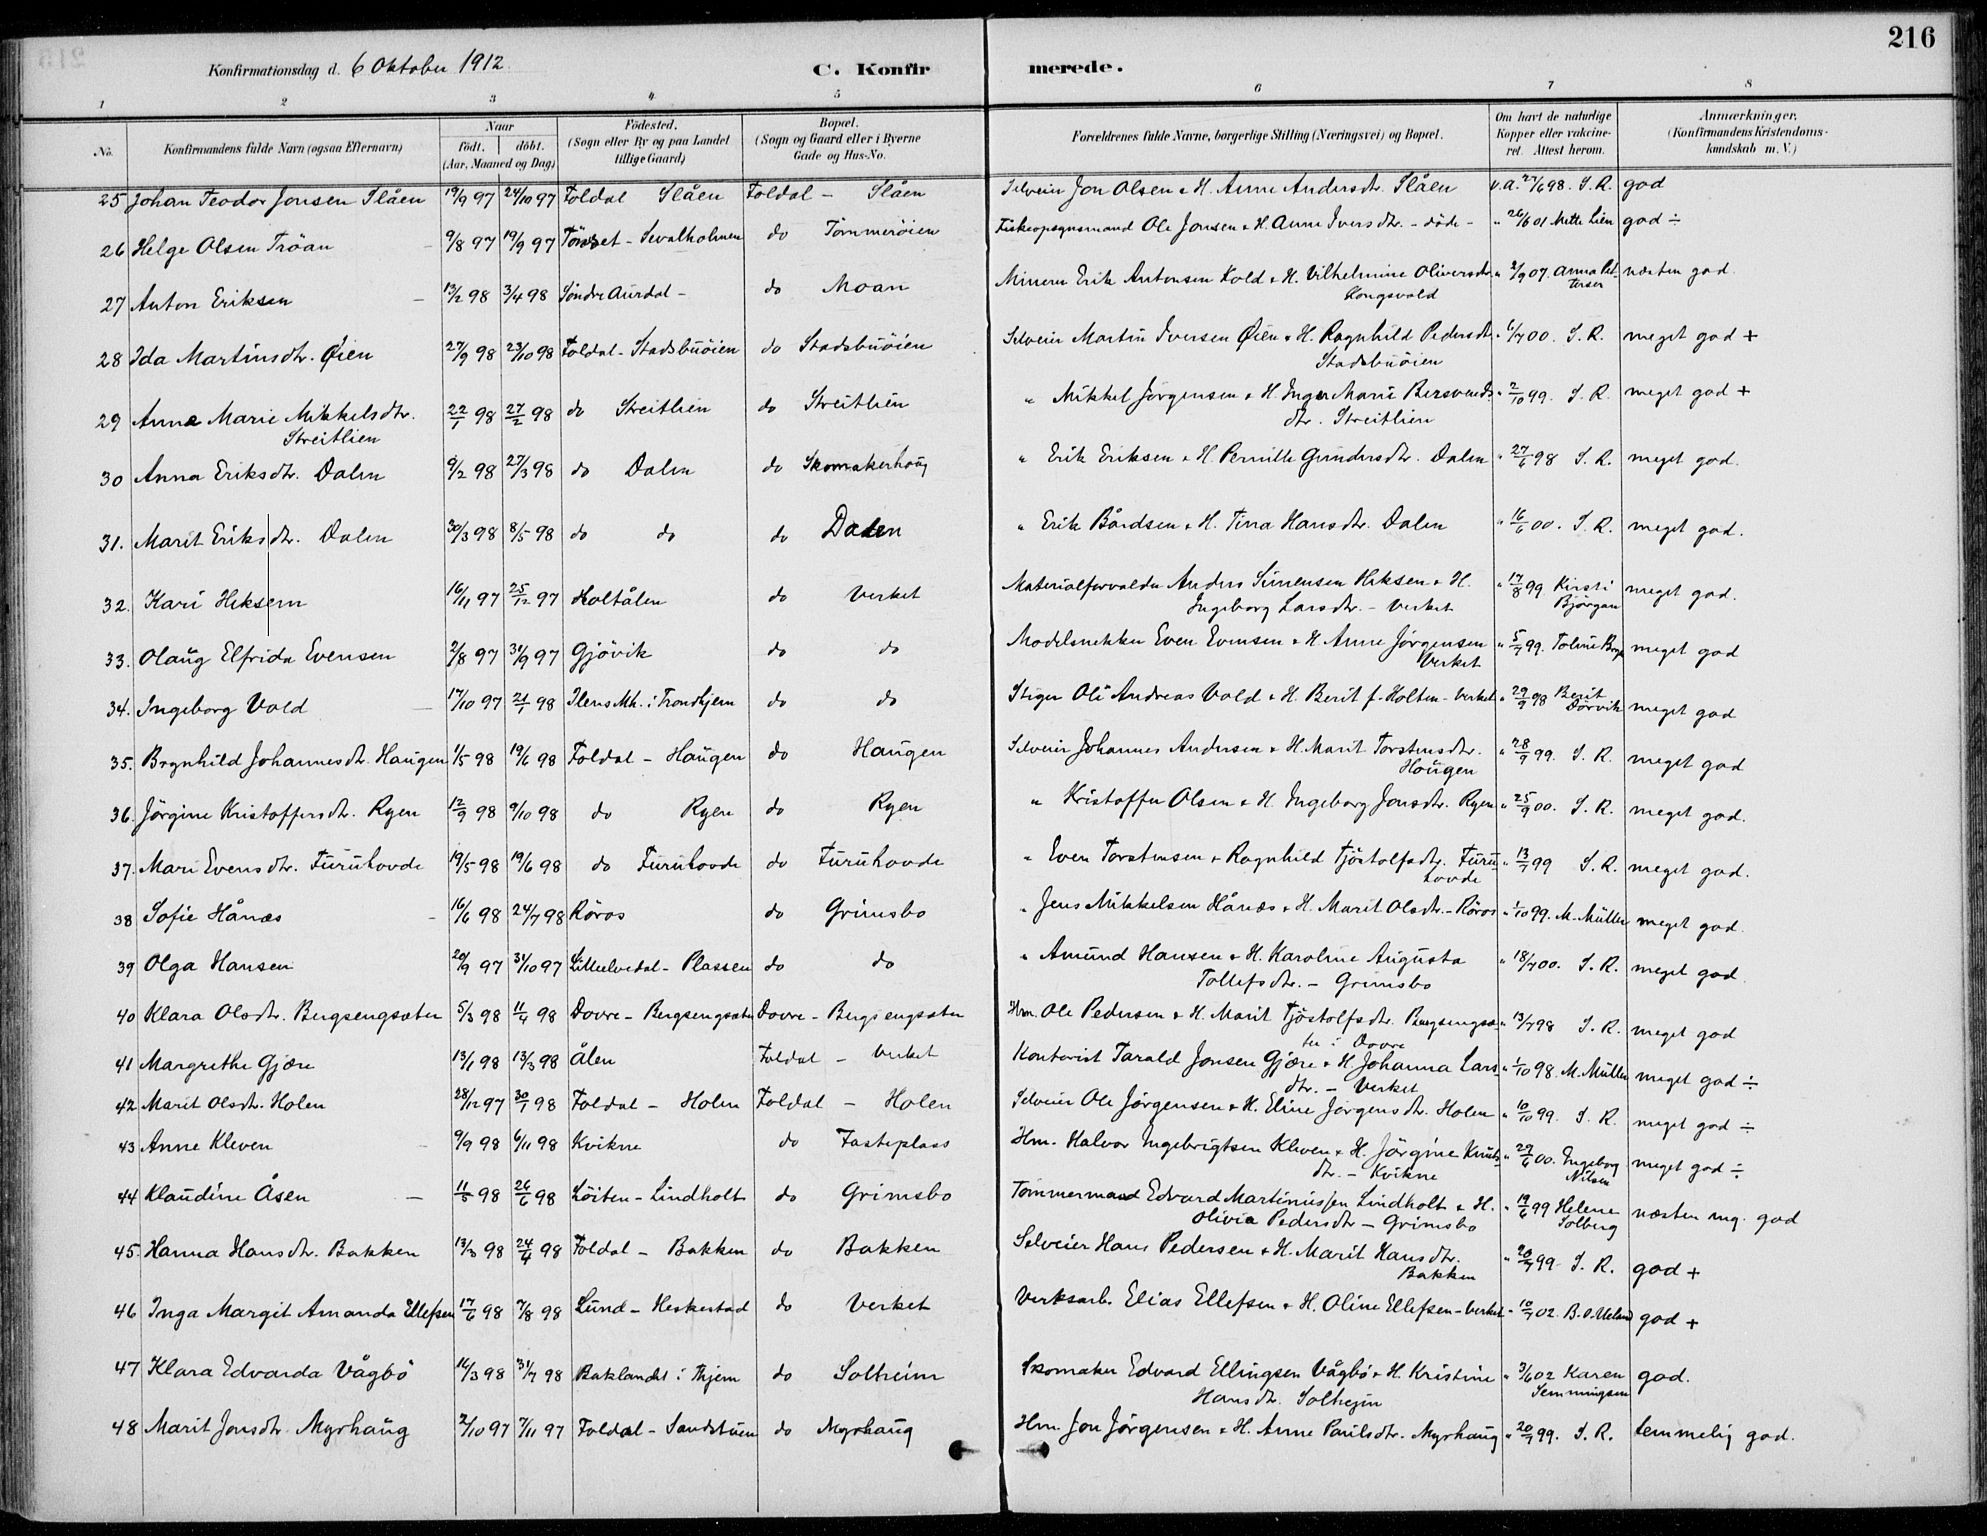 216
Konfirmationsdag d. 6 Oktober 1912.
C. Konfirmerede.
1 2 3 4 5 6 7 8
No. Konfirmandens fulde Navn (ogsaa Efternavn) Naar födt. döbt. (Aar, Maaned og Dag) Födested. (Sogn eller By og paa Landet tillige Gaard) Bopæl. (Sogn og Gaard eller i Byerne Gade og Hus-No. Forældrenes fulde Navne, borgerlige Stilling (Næringsvei) og Bopæl. Om havt de naturlige Kopper eller vakcineret. Attest herom. Anmærkninger, (Konfirmandens Kristendomskundskab m. V.)
25 Johan Teodor Jonsen Slåen 19/9 97 24/10 97 Foldal Slåen Foldal - Slåen Selveier Jon Olsen & H. Anne Andersdtr. Slåen v.a. 27/6 98. S. R. god
26 Helge Olsen Tröan 9/8 97 19/9 97 Tönset - Sevalholmen do Tömmeröien Fiskeopsynsmand Ole Jonsen & H. Anne Iversdtr. - döde - " 26/6 01 Mette Lien god ÷
27 Anton Eriksen 13/2 98 3/4 98 Söndre Aurdal - do Moan Minerer Erik Antonsen Kold & H. Vilhelmine Oliversdtr. " 2/9 07. Anna Pet- næsten god.
Kongsvold tersen
28 Ida Martinsdtr. Öien 27/9 98 23/10 98 Foldal - Stadsbuöien do Stadsbuöien Selveier Martin Iversen Öien & H. Ragnhild Pedersdtr. " 6/7 00. S. R. meget god +
Stadsbuöien
29 Anne Marie Mikkelsdtr. 22/1 98 27/2 98 do Streitlien do Streitlien " Mikkel Jörgensen & H. Inger Marie Bersvends- " 2/10 99. S. R. meget god +
Streitlien dtr. Streitlien
30 Anna Eriksdtr. Dalen 9/2 98 27/3 98 do Dalen do Skomakerhaug " Erik Eriksen & H. Pernille Gundersdtr. Dalen " 27/6 98 S. R. meget god.
31. Marit Eriksdtr. Dalen 30/3 98 8/5 98 do do do Dalen " Erik Bårdsen & H. Tina Hansdtr. Dalen " 16/6 00. S. R. meget god.
32. Kari Heksem 16/11 97 25/12 97 Holtålen do Verket Materialforvalter Anders Simensen Heksem & H. " 17/8 99 Kirsti meget god.
Ingeborg Larsdtr. - Verket Bjørgan
33. Olaug Elfrida Evensen 2/8 97 Gjövik do do Modelsnekker Even Evensen & H. Anne Jörgensen " 5/7 99. meget god
Verket
34. Ingeborg Vold 17/10 97 2/1 98 Ilens Mh. i Trondhjem do do Stiger Ole Andreas Vold & H. Berit f. Holten - Verket " 29/9 98 Berit meget god
Dørvik
35. Brynhild Johannesdtr. Haugen 1/5 98 19/6 98 Foldal - Haugen do Haugen Selveier Johannes Andersen & H. Marit Torstensdtr. " 28/9 99. S. R. meget god
Haugen
36. Jörgine Kristoffersdtr. Ryen 12/9 98 9/10 98 do Ryen do Ryen " Kristoffer Olsen & H. Ingeborg Jonsdtr. Ryen " 25/9 00. S. R. meget god.
37. Mari Evensdtr. Furuhovde 19/5 98 19/6 98 do Furuhovde do Furuhovde " Even Torstensen & Ragnhild Tjöstolfsdtr. Furu- " 13/7 99 S. R. meget god.
hovde
38 Sofie Hånæs 16/6 98 24/7 98 Röros do Grimsbo " Jens Mikkelsen Hånæs & H. Marit Olsdtr. - Röros " 1/10 99. M. Müller meget god.
39 Olga Hansen 20/9 97 31/10 97 Lilleelvedal - Plassen do do " Amund Hansen & H. Karoline Augusta " 18/7 00. S. R. meget god
Tollefsdtr. - Grimsbo
40 Klara Olsdtr. Bergsengsæter 5/3 98 11/4 98 Dovre - Bergsengsæter Dovre - Bergsengsæter Hm. Ole Pedersen & H. Marit Tjöstolfsdtr. Bergsengsæ- " 13/7 98 S. R. meget god
ter i Dovre
41 Margrethe Gjære 13/1 98 13/3 98 Ålen Foldal - Verket Kontorist Tarald Jonsen Gjære & H. Johanna Lars- " 1/10 98. M. Müller meget god ÷
dtr. - Verket
42 Marit Olsdtr. Holen 28/12 97 30/1 98 Foldal - Holen Foldal - Holen Selveier Ole Jörgensen & H. Eline Jörgensdtr. Holen " 10/10 99. S. R. meget god ÷
43 Anne Kleven 9/9 98 6/11 98 Kvikne do Fasteplass Hm. Halvor Ingebrigtsen Kleven & H. Jörgine Knuts- " 29/6 00. Ingeborg meget god ÷
dtr. - Kvikne Nilsen
44 Klaudine Åsen 11/5 98 26/6 98 Löiten - Lindholt do Grimsbo Tömmermand Edvard Martinussen Lindholt & H. " 19/6 99 Helene næsten mg. god
Olivia Pedersdtr - Grimsbo Solberg
45. Hanna Hansdtr. Bakken 13/3 98 24/4 98 Foldal - Bakken do Bakken Selveier Hans Pedersen & H. Marit Hansdtr. " 20/7 99 S. R. god +
Bakken
46 Inga Margit Amanda Ellefsen 17/6 98 7/8 98 Lund - Heskestad do Verket Verksarb. Elias Ellefsen & H. Oline Ellefsen - Verket " 10/7 02. B. O. Ueland god +
47 Klara Edvarda Vågbö 14/3 98 31/7 98 Baklandet i Thjem do Solheim Skomaker Edvard Ellingsen Vågbö & H. Kristine " 3/6 02 Karen god.
Hansdtr. Solheim Semmingsen
48 Marit Jonsdtr. Myrhaug 2/10 97 7/11 97 Foldal - Sandstuen do Myrhaug Hm. Jon Jörgensen & H. Anne Paulsdtr. Myrhaug " 20/7 99. S. R. temmelig god.